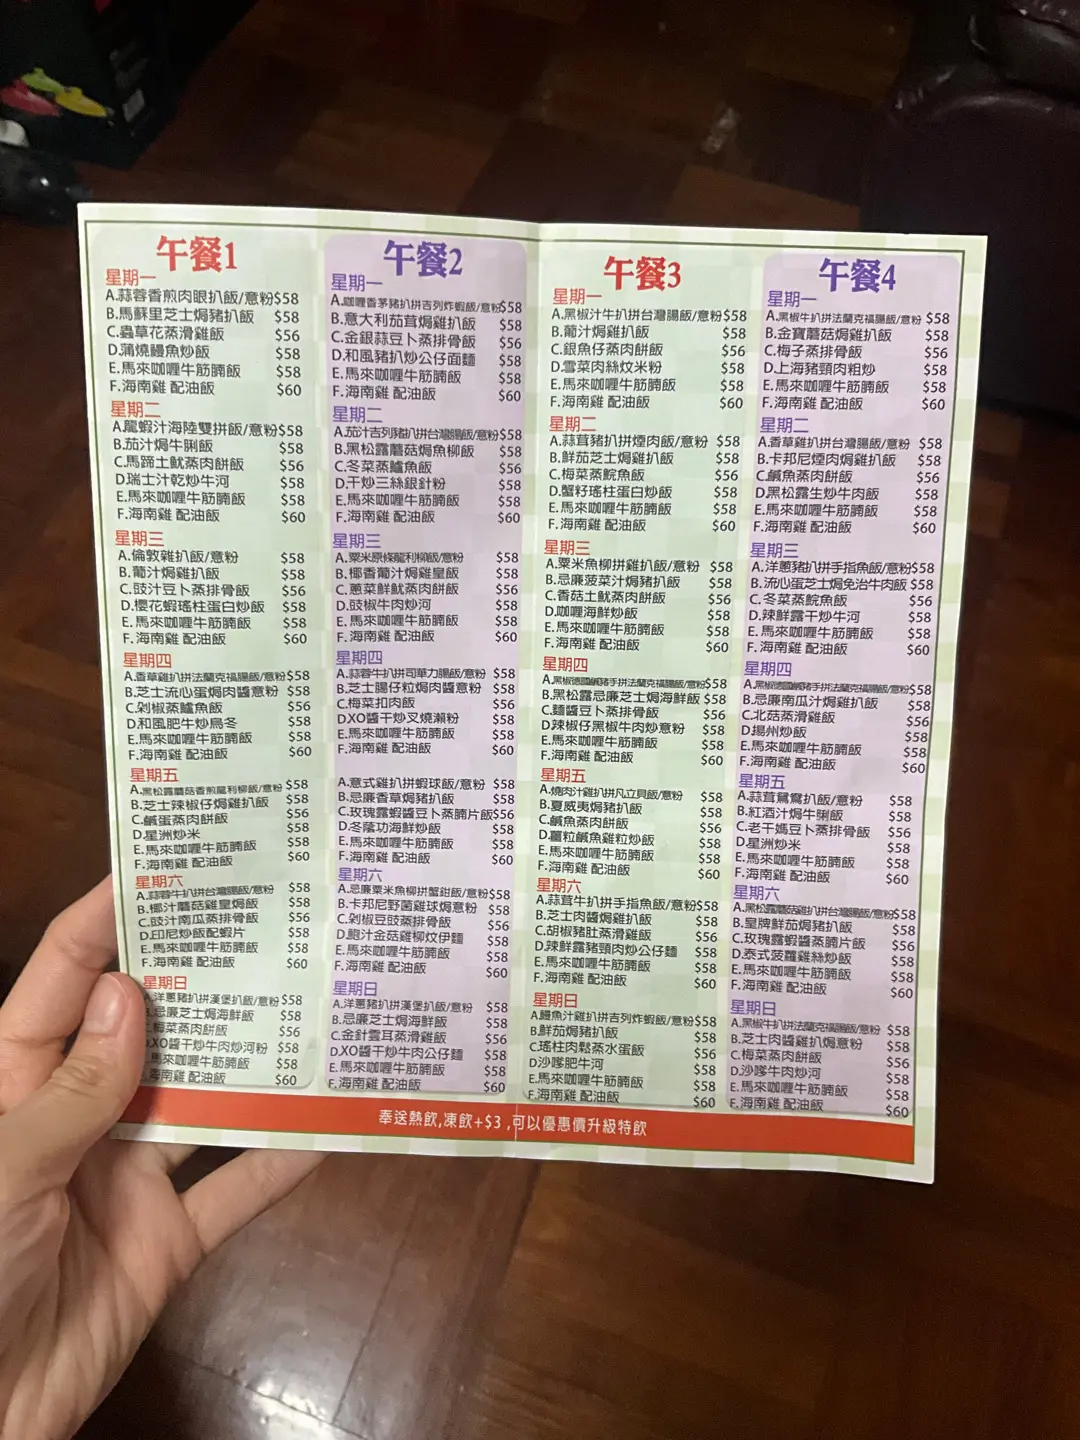 午餐1
星期一
A.蒜蓉香煎肉眼扒飯/意粉$58
B.馬蘇里芝士焗豬扒飯 $58
C.蟲草花蒸滑雞飯 $56
D.蒲燒鰻魚炒飯 $58
E.馬來咖喱牛筋腩飯 $58
F.海南雞 配油飯 $60
星期二
A.龍蝦汁海陸雙拼飯/意粉$58
B.茄汁焗牛脷飯 $58
C.馬蹄土魷蒸肉餅飯 $56
D.瑞士汁乾炒牛河 $58
E.馬來咖喱牛筋腩飯 $58
F.海南雞 配油飯 $60
星期三
A.倫敦雜扒飯/意粉 $58
B.葡汁焗雞扒飯 $58
C.豉汁豆卜蒸排骨飯 $56
D.櫻花蝦瑤柱蛋白炒飯 $58
E.馬來咖喱牛筋腩飯 $58
F.海南雞 配油飯 $60
星期四
A.香草雞扒拼法蘭克福腸飯/意粉$58
B.芝士流心蛋焗肉醬意粉 $58
C.剁椒蒸鱸魚飯 $56
D.和風肥牛炒烏冬 $58
E.馬來咖喱牛筋腩飯 $58
F.海南雞 配油飯 $60
星期五
A.黑松露蘑菇香煎龍利柳飯/意粉 $58
B.芝士辣椒仔焗雞扒飯 $58
C.鹹蛋蒸肉餅飯 $56
D.星洲炒米 $58
E.馬來咖喱牛筋腩飯 $58
F.海南雞 配油飯 $60
星期六
A.蒜蓉牛扒拼台灣腸飯/意粉 $58
B.椰汁蘑菇雞皇焗飯 $58
C.豉汁南瓜蒸排骨飯 $56
D.印尼炒飯配蝦片 $58
E.馬來咖喱牛筋腩飯 $58
F.海南雞 配油飯 $60
星期日
A.洋蔥豬扒拼漢堡扒飯/意粉$58
忌廉芝士焗海鮮飯 $58
梅菜蒸肉餅飯 $56
D.XO醬干炒牛肉炒河粉 $58
馬來咖喱牛筋腩飯 $58
海南雞 配油飯 $60
午餐2
星期一
A.咖喱香茅豬扒拼吉列炸蝦飯/意粉$58
B.意大利茄茸焗雞扒飯 $58
C.金銀蒜豆卜蒸排骨飯 $56
D.和風豬扒炒公仔面麵 $58
E.馬來咖喱牛筋腩飯 $58
F.海南雞 配油飯 $60
星期二
A.茄汁吉列豬扒拼台灣腸飯/意粉$58
B.黑松露蘑菇焗魚柳飯 $58
C.冬菜蒸鱸魚飯 $56
D.干炒三絲銀針粉 $58
E.馬來咖喱牛筋腩飯 $58
F.海南雞 配油飯 $60
星期三
A.粟米原條龍利柳飯/意粉 $58
B.椰香葡汁焗雞皇飯 $58
C.蔥菜鮮魷蒸肉餅飯 $56
D.豉椒牛肉炒河 $58
E.馬來咖喱牛筋腩飯 $58
F.海南雞 配油飯 $60
星期四
A.蒜蓉牛扒拼司華力腸飯/意粉 $58
B.芝士腸仔粒焗肉醬意粉 $58
C.梅菜扣肉飯 $56
D.XO醬干炒叉燒瀨粉 $58
E.馬來咖喱牛筋腩飯 $58
F.海南雞 配油飯 $60
A.意式雞扒拼蝦球飯/意粉 $58
B.忌廉香草焗豬扒飯 $58
C.玫瑰露蝦醬豆卜蒸腩片飯$56
D.冬蔭功海鮮炒飯 $58
E.馬來咖喱牛筋腩飯 $58
F.海南雞 配油飯 $60
星期六
A.忌廉粟米魚柳拼蟹鉗飯/意粉$58
B.卡邦尼野菌雞球焗意粉 $58
C.剁椒豆豉蒸排骨飯 $56
D.鮑汁金菇雞柳炆伊麵 $58
E.馬來咖喱牛筋腩飯 $58
F.海南雞 配油飯 $60
星期日
A.洋蔥豬扒拼漢堡扒飯/意粉 $58
B.忌廉芝士焗海鮮飯 $58
C.金針雲耳蒸滑雞飯 $56
D.XO醬干炒牛肉公仔麵 $58
E.馬來咖喱牛筋腩飯 $58
F.海南雞 配油飯 $60
午餐3
星期一
A.黑椒汁牛扒拼台灣腸飯/意粉$58
B.葡汁焗雞扒飯 $58
C.銀魚仔蒸肉餅飯 $56
D.雪菜肉絲炆米粉 $58
E.馬來咖喱牛筋腩飯 $58
F.海南雞 配油飯 $60
星期二
A.蒜茸豬扒拼煙肉飯/意粉 $58
B.鮮茄芝士焗雞扒飯 $58
C.梅菜蒸鯇魚飯 $56
D.蟹籽瑤柱蛋白炒飯 $58
E.馬來咖喱牛筋腩飯 $58
F.海南雞 配油飯 $60
星期三
A.粟米魚柳拼雞扒飯/意粉 $58
B.忌廉菠菜汁焗豬扒飯 $58
C.香菇土魷蒸肉餅飯 $56
D.咖喱海鮮炒飯 $58
E.馬來咖喱牛筋腩飯 $58
F.海南雞 配油飯 $60
星期四
A.黑椒德國鹹豬手拼法蘭克福腸飯/意粉$58
B.黑松露忌廉芝士焗海鮮飯 $58
C.麵醬豆卜蒸排骨飯 $56
D.辣椒仔黑椒牛肉炒意粉 $58
E.馬來咖喱牛筋腩飯 $58
F.海南雞 配油飯 $60
星期五
A.燒肉汁雞扒拼凡立貝飯/意粉 $58
B.夏威夷焗豬扒飯 $58
C.鹹魚蒸肉餅飯 $56
D.薑粒鹹魚雞粒炒飯 $58
E.馬來咖喱牛筋腩飯 $58
F.海南雞 配油飯 $60
星期六
A.蒜茸牛扒拼手指魚飯/意粉$58
B.芝士肉醬焗雞扒飯 $58
C.胡椒豬肚蒸滑雞飯 $56
D.辣鮮露豬頸肉炒公仔麵 $58
E.馬來咖喱牛筋腩飯 $58
F.海南雞 配油飯 $60
星期日
A.鰻魚汁雞扒拼吉列炸蝦飯/意粉$58
B.鮮茄焗豬扒飯 $58
C.瑤柱肉鬆蒸水蛋飯 $56
D沙嗲肥牛河 $58
E.馬來咖喱牛筋腩飯 $58
F.海南雞 配油飯 $60
午餐4
星期一
A.黑椒牛扒拼法蘭克福腸飯/意粉 $58
B.金寶蘑菇焗雞扒飯 $58
C.梅子蒸排骨飯 $56
D.上海豬頸肉粗炒 $58
E.馬來咖喱牛筋腩飯 $58
F.海南雞 配油飯 $60
星期二
A.香草雞扒拼台灣腸飯/意粉 $58
B.卡邦尼煙肉焗雞扒飯 $58
C.鹹魚蒸肉餅飯 $56
D.黑松露生炒牛肉飯 $58
E.馬來咖喱牛筋腩飯 $58
F.海南雞 配油飯 $60
星期三
A.洋蔥豬扒拼手指魚飯/意粉$58
B.流心蛋芝士焗免治牛肉飯 $58
C.冬菜蒸鯇魚飯 $56
D.辣鮮露干炒牛河 $58
E.馬來咖喱牛筋腩飯 $58
F.海南雞 配油飯 $60
星期四
A.黑椒德國鹹豬手拼法蘭克福腸飯/意粉$58
B.忌廉南瓜汁焗雞扒飯 $58
C.北菇蒸滑雞飯 $56
D揚州炒飯 $58
E.馬來咖喱牛筋腩飯 $58
F.海南雞 配油飯 $60
星期五
A.蒜茸鴛鴦扒飯/意粉 $58
B.紅酒汁焗牛脷飯 $58
C.老干媽豆卜蒸排骨飯 $56
D.星洲炒米 $58
E.馬來咖喱牛筋腩飯 $58
F.海南雞 配油飯 $60
星期六
A.黑松露蘑菇雞扒拼台灣腸飯/意粉$58
B.皇牌鮮茄焗豬扒飯 $58
C.玫瑰露蝦醬蒸腩片飯 $56
D.泰式菠蘿雞絲炒飯 $58
E.馬來咖喱牛筋腩飯 $58
F.海南雞 配油飯 $60
星期日
A.黑椒牛扒拼法蘭克福腸飯/意粉 $58
B.芝士肉醬雞扒焗意粉 $58
C.梅菜蒸肉餅飯 $56
D.沙嗲牛肉炒河 $58
E.馬來咖喱牛筋腩飯 $58
F.海南雞 配油飯 $60
奉送熱飲,凍飲+$3 ,可以優惠價升級特飲